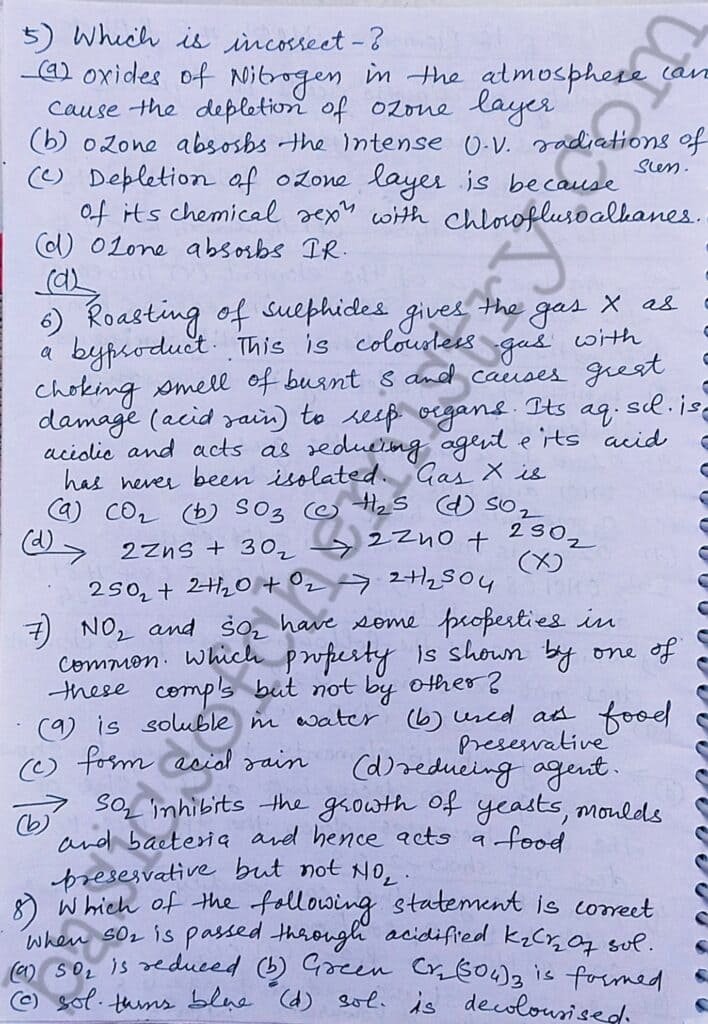 5) Which is incorrect -?
(a) oxides of Nitrogen in the atmosphere can
cause the depletion of ozone layer
(b) ozone absorbs the intense U.V. radiations of
sun.
(c) Depletion of ozone layer is because
of its chemical rexⁿ with chlorofluroalkanes.
(d) Ozone absorbs IR.
(d)
6) Roasting of sulphides gives the gas X as
a byproduct. This is colourless gas with
choking smell of burnt S and causes great
damage (acid rain) to resp organs. Its aq. sol. is
acidic and acts as reducing agent & its acid
has never been isolated. Gas X is
(a) CO₂ (b) SO₃ (c) H₂S (d) SO₂
(d) → 2ZnS + 3O₂ → 2ZnO + 2SO₂
(X)
2SO₂ + 2H₂O + O₂ → 2H₂SO₄
7) NO₂ and SO₂ have some properties in
common. Which property is shown by one of
these comp's but not by other?
(a) is soluble in water (b) used as food
preservative
(c) form acid rain (d) reducing agent.
→ SO₂ inhibits the growth of yeasts, moulds
(b) and bacteria and hence acts a food
preservative but not NO₂.
8) Which of the following statement is correct
when SO₂ is passed through acidified K₂Cr₂O₇ sol.
(a) SO₂ is reduced (b) Green Cr₂(SO₄)₃ is formed
(c) sol. turns blue (d) sol. is decolourised.
basicsofchemistry.com